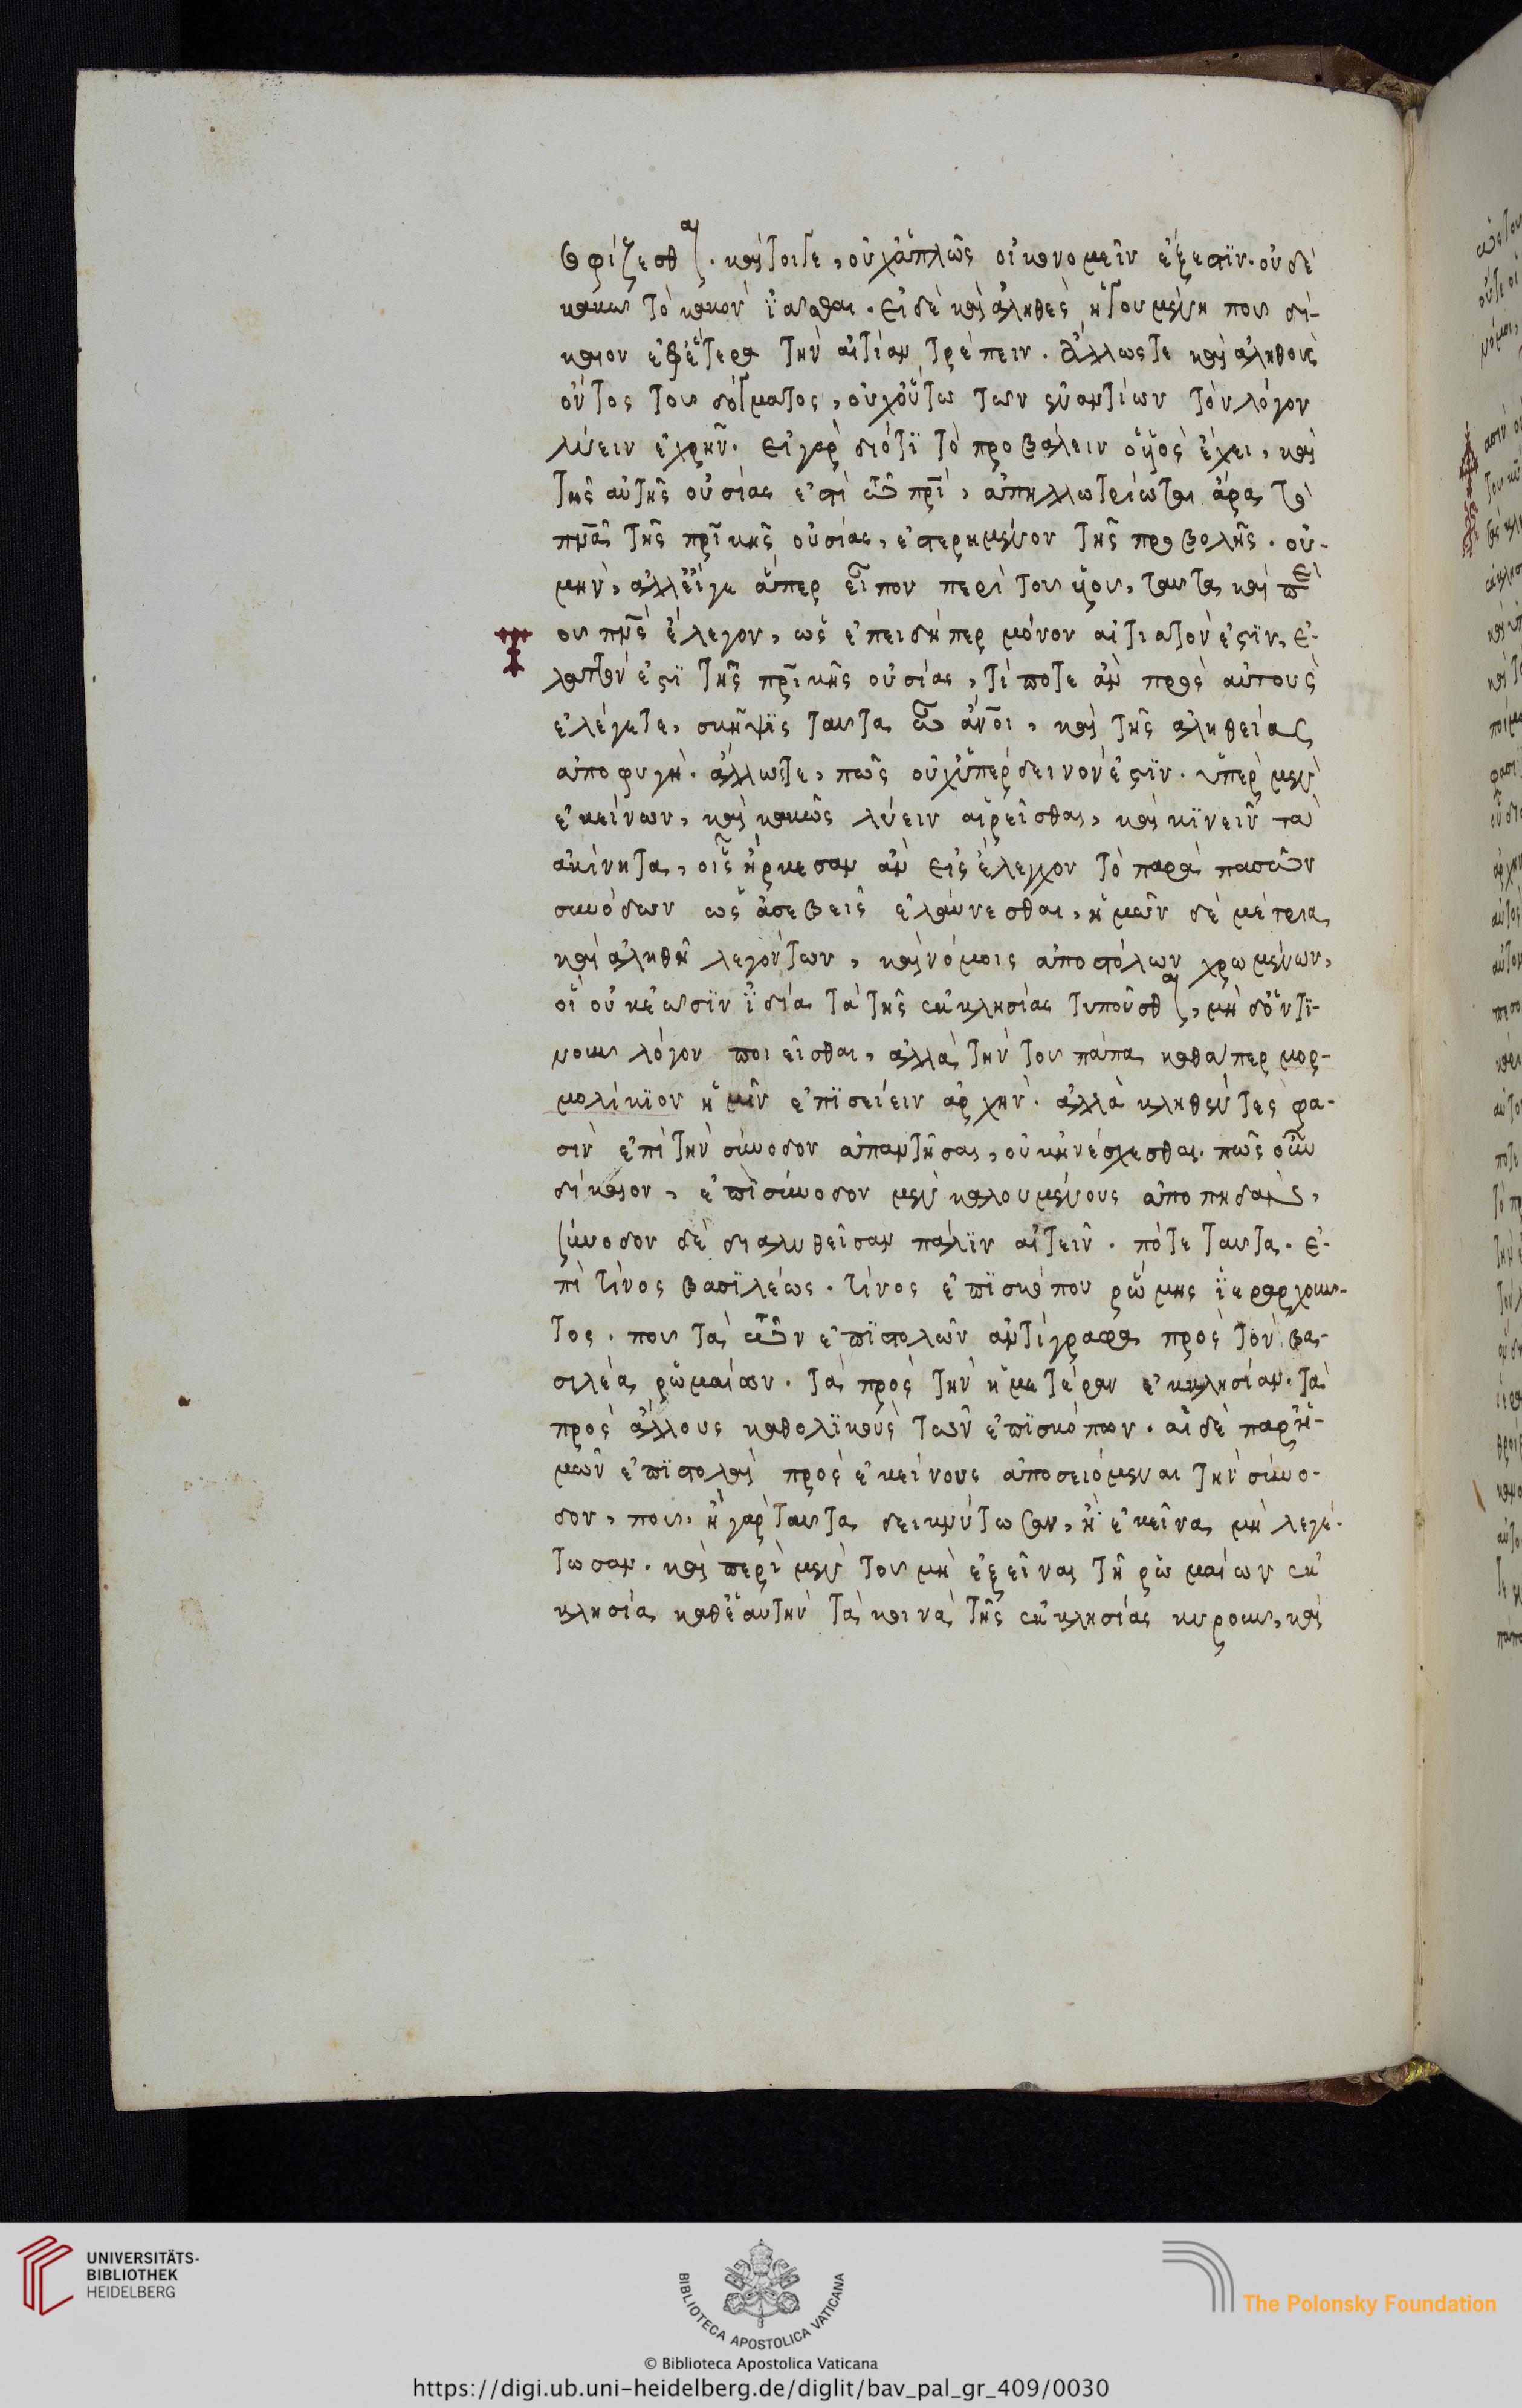 σφίζεσθαι. καίτοιγε, οὐχἁπλῶς οἰκονομεῖν ἔξεστϊν. οὐδὲ
κακῶ τὸ κακὸν ἰᾶσθαι. εἰ δὲ καὶ ἀληθὲς, ἡγουμένη που δί-
καιον ἐφἕτερα τὴν αἰτίαν τρέπειν. ἄλλωςτε καὶ ἀληθοῦς
ὄντος τοῦ δόγματος, οὐχοὕτω τῶν ἐναντίων τὸν λόγον
λύειν ἐχρῆν. εἰ γὰρ διότϊ τὸ προβάλειν ὁ υἱὸς ἔχει, καὶ
τῆς αὐτῆς οὐσίας ἐστὶ τῶ πρι̅, ἀπηλλωτρίωται ἄρα τὸ
πνα̅ τῆς πρι̅κῆς οὐσίας, ἐστερημένον τῆς προβολῆς. οὐ-
μὴν, ἀλλεἴγε ἅπερ εἶπον περὶ τοῦ υἱοῦ, ταῦτα καὶ περὶ
τοῦ πνς̅ ἔλεγον, ὡς ἐπειδήπερ μόνον αἰτιατόν ἐστϊν, ἔ-
λαττόν ἐστϊ τῆς πρι̅κῆς οὐσίας, τί ποτε ἂν πρὸς αὐτοὺς
ἐλέγετε, σκῆψϊς ταῦτα ὦ ἄνοι̅, καὶ τῆς ἀληθείας
ἀποφυγὴ. ἄλλωστε, πῶς οὐχὑπέρδεινόν ἐστϊν. ὑπὲρ μὲν
ἐκείνων, καὶ κακῶς λύειν αἱρεῖσθαι, καὶ κϊνεῖν τὰ
ἀκίνητα, οἷς ἤρκεσαν ἂν εἰς ἔλεγχον τὸ παρὰ πασῶν
συνόδων ὡς ἀσεβεῖς ἐλαύνεσθαι, ἡμῶν δὲ μέτρια
καὶ ἀληθῆ λεγόντων, καὶ νόμοις ἀποστόλων χρωμένων,
οἳ οὐκἐῶσϊν ἰδία τὰ τῆς ἐκκλησίας τυποῦσθαι, μὴ δὅντϊ-
νοῦν λόγον ποιεῖσθαι, ἀλλὰ τὴν τοῦ πάπα καθάπερ μορ-
μολίκϊον ἡμῖν ἐπϊσείειν ἀρχὴν. ἀλλὰ κληθέντες φα-
σὶν ἐπὶ τὴν σύνοδον ἀπαντῆσαι, οὐκἠνέσχεσθαι. πῶς οὖν
δίκαιον, ἐπὶ σύνοδον μὲν καλουμένους ἀποπηδᾶν,
σύνοδον δὲ διαλυθεῖσαν πάλϊν αἰτεῖν. πότε ταῦτα. ἐ-
πὶ τίνος βασϊλέως. τίνος ἐπϊσκόπου ῥώμης ἱεραρχοῦν-
τος. ποῦ τὰ τῶν ἐπϊστολῶν ἀντίγραφα πρὸς τὸν βα-
σιλέα ῥωμαίων. τὰ πρὸς τὴν ἡμετέραν ἐκκλησίαν. τὰ
πρὸς ἄλλους καθολϊκοὺς τῶν ἐπϊσκόπων. αἱ δὲ παρἡ-
μῶν ἐπϊστολαὶ πρὸς ἐκείνους ἀποσειόμεναι τὴν σύνο-
δον, ποῦ, ἢ γὰρ ταῦτα δεικνύτωσαν, ἢ ἐκεῖνα μὴ λεγέ-
τωσαν. καὶ περὶ μὲν τοῦ μὴ ἐξεῖναι τῆ ῥωμαίων ἐκ
κλησία καθἑαυτὴν τὰ κοινὰ τῆς ἐκκλησίας κυροῦν, καὶ
UNIVERSITÄTS-
BIBLIOTHEK
HEIDELBERG
BIBLIOTECA APOSTOLICA VATICANA
The Polonsky Foundation
© Biblioteca Apostolica Vaticana
https://digi.ub.uni-heidelberg.de/diglit/bav_pal_gr_409/0030